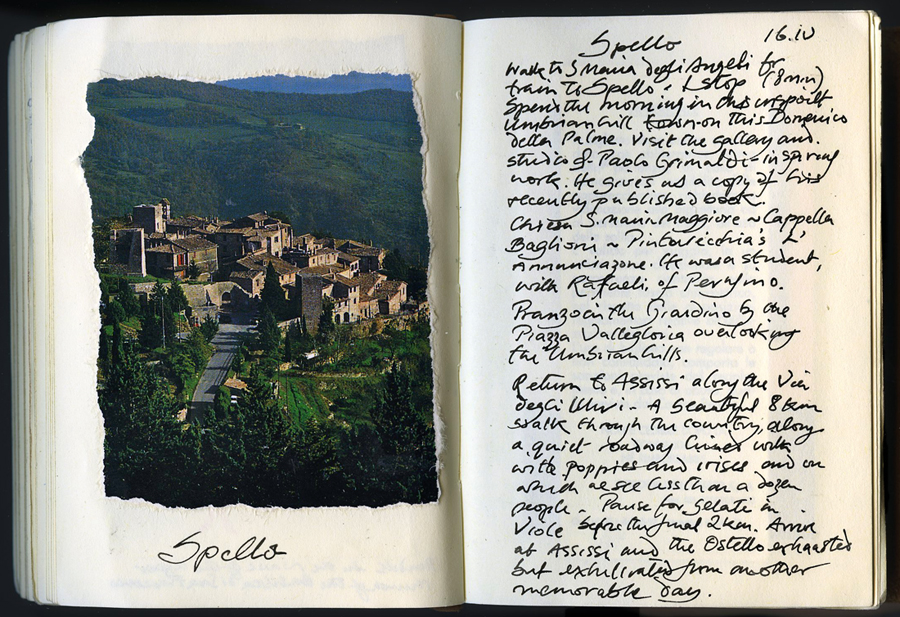 Spello
Spello 16.IV
Walk to S Maria degli Angeli for
train to Spello - 1 stop (8 min)
Spend the morning in this unspoilt
Umbrian hill town on this Domenico
della Palme. Visit the gallery and
studio of Paolo Grimaldi - inspiring
work. He gives us a copy of his
recently published book.
Chiesa S. Maria Maggiore ~ Cappella
Baglioni ~ Pinturicchia's L'
Annunciazone. He was a student,
with Rafaeli of Perugino.
Pranzo in the Giardino by the
Piazza Vallegloria overlooking
the Umbrian hills.
Return to Assissi along the Via
degli Ulivi - A beautiful 8 km
walk through the country, along
a quiet roadway lined with
with poppies and irises and on
which we see less than a dozen
people - Pause for gelati in
Viole before the final 2 km. Arrive
at Assissi and the Ostello exhausted
but exhilirated from another
memorable day.